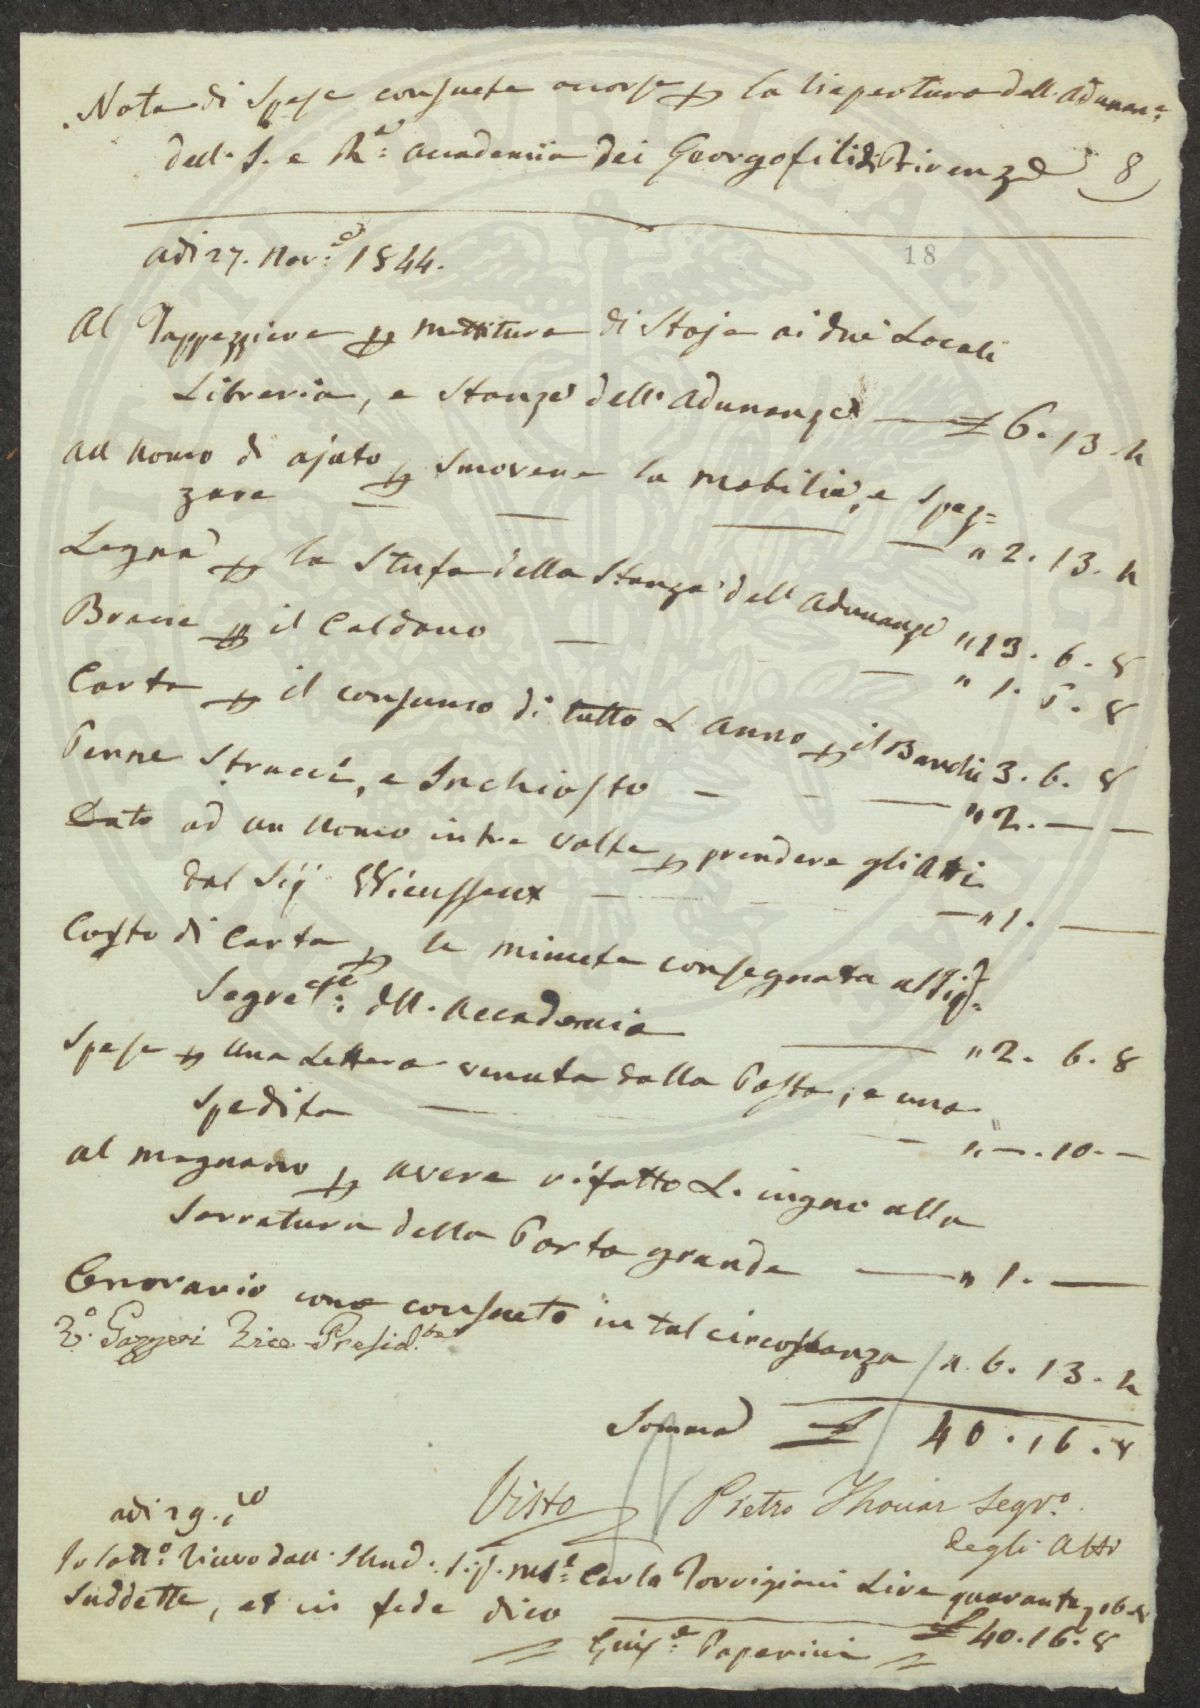 Nota di Spese consuete occorse per la riapertura dell. Adunan:e
dell. I. e R.e Accademia dei Georgofili di Firenze
8
18
adi 27. Nov:e 1844.
Al Tappezziere per mettitura di Stoje ai due Locali
Libreria, e Stanze dell'Adunanze £ 6. 13. 4
Ad uomo di ajuto per smovere la mobilia, e spaz=
zare " 2. 13. 4
Legna per la Stufa della Stanza dell Adunanze " 13. 6. 8
Brace per il Caldano " 1. 6. 8
Carta per il consumo di tutto L'anno per il Banchi 3. 6. 8
Penne Stracci, e Inchiosto " 2. — —
Dato ad un uomo in tre volte per prendere gli Atti
dal Sig Wieusseux " 1. —
Costo di Carta per le minute consegnata al Sig=
Segre: dell. Accademia " 2. 6. 8
Spese per una Lettera venuta dalla Posta, e una
spedita " —. 10. —
al magnano per avere rifatto L. ingni alla
serratura della Porta grande " 1. —
Onorario come consueto in tal circostanza " 6. 13. 4
V.o Gazzeri Vice Presid.te
Somma £ 40. 16. 8
Visto Pietro Thouar Segr.o
degli Atti
adi 29.
Io sott.o ricevo dall. Illmd. Sig. M:e Carlo Torrigiani Lire quaranta, 16. 8
Suddette, et in fede dico £ 40. 16. 8
Guis.e Paperini